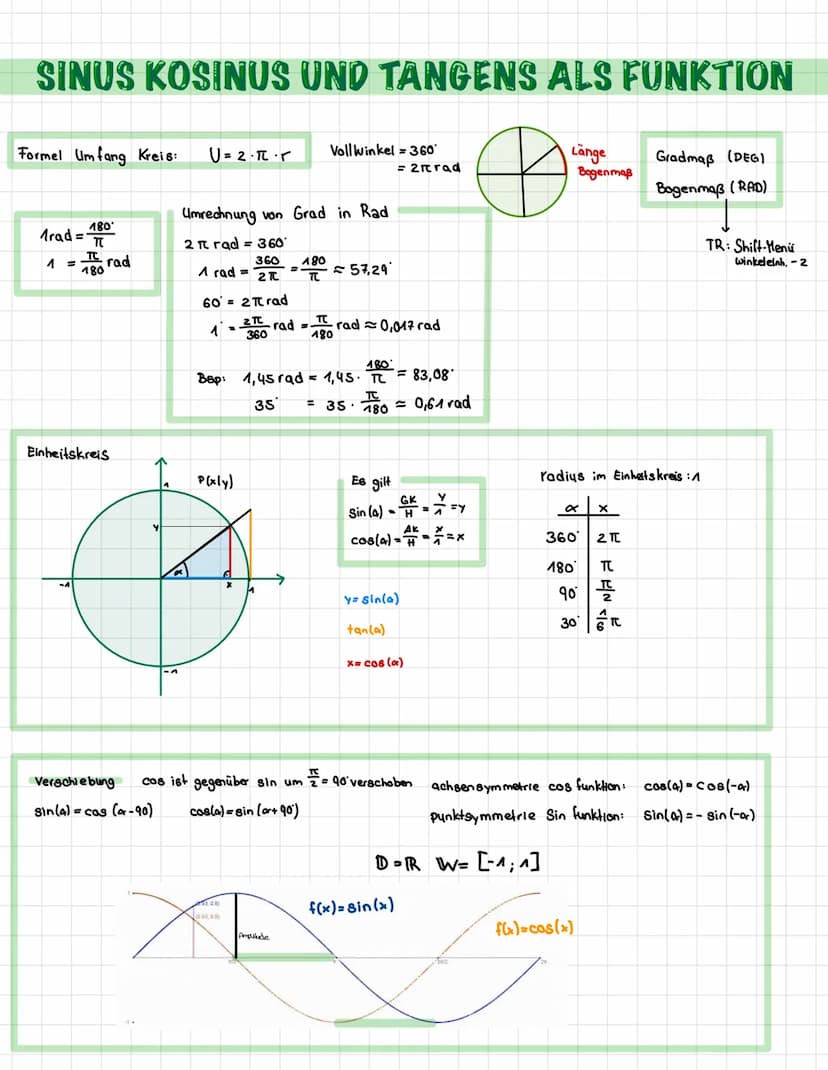 SINUS KOSINUS UND TANGENS ALS FUNKTION
Formel Umfang Kreis: U = 2 · π · r
Vollwinkel = 360°
= 2π rad
Länge
Bogenmaß
Gradmaß (DEG)
Bogenmaß (RAD)
TR: Shift-Menü
Winkeleinh. - 2
1rad = 180°/π
1 = π/180 rad
Umrechnung von Grad in Rad
2π rad = 360°
1 rad = 360/2π = 180/π ≈ 57,29°
60° = 2π rad
1° = 2π/360 rad = π/180 rad ≈ 0,017 rad
Bsp: 1,45 rad = 1,45 · 180°/π = 83,08°
35° = 35 · π/180 ≈ 0,61 rad
Einheitskreis
P(x|y)
1
y
α
-1
x
1
-1
Es gilt
sin(α) = GK/H = y/1 = y
cos(α) = AK/H = x/1 = x
y = sin(α)
tan(α)
x = cos(α)
radius im Einheitskreis : 1
α x
360° 2π
180° π
90° π/2
30° 1/6 π
Verschiebung cos ist gegenüber sin um π/2 = 90° verschoben
sin(α) = cos(α-90) cos(α) = sin(α+90°)
achsensymmetrie cos funktion: cos(α) = cos(-α)
punktsymmetrie Sin funktion: sin(α) = - sin(-α)
D = R W = [-1 ; 1]
f(x) = sin(x)
f(x) = cos(x)
Amplitude